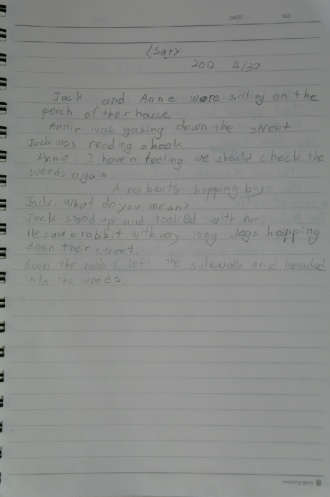 DATE NO.
(Sat)
2012 4/30
Jack and Annie were sitting on the
porch of their house
Annie was gazing down the street
Jack was reading a book
Annie: I have a feeling we should check the
woods again
A rabbits hopping by
Jack: What do you mean?
Jack stood up and looked with her
He saw a rabbit with very long legs hopping
down their street.
Soon the rabbit left the sidewalk and headed
into the woods